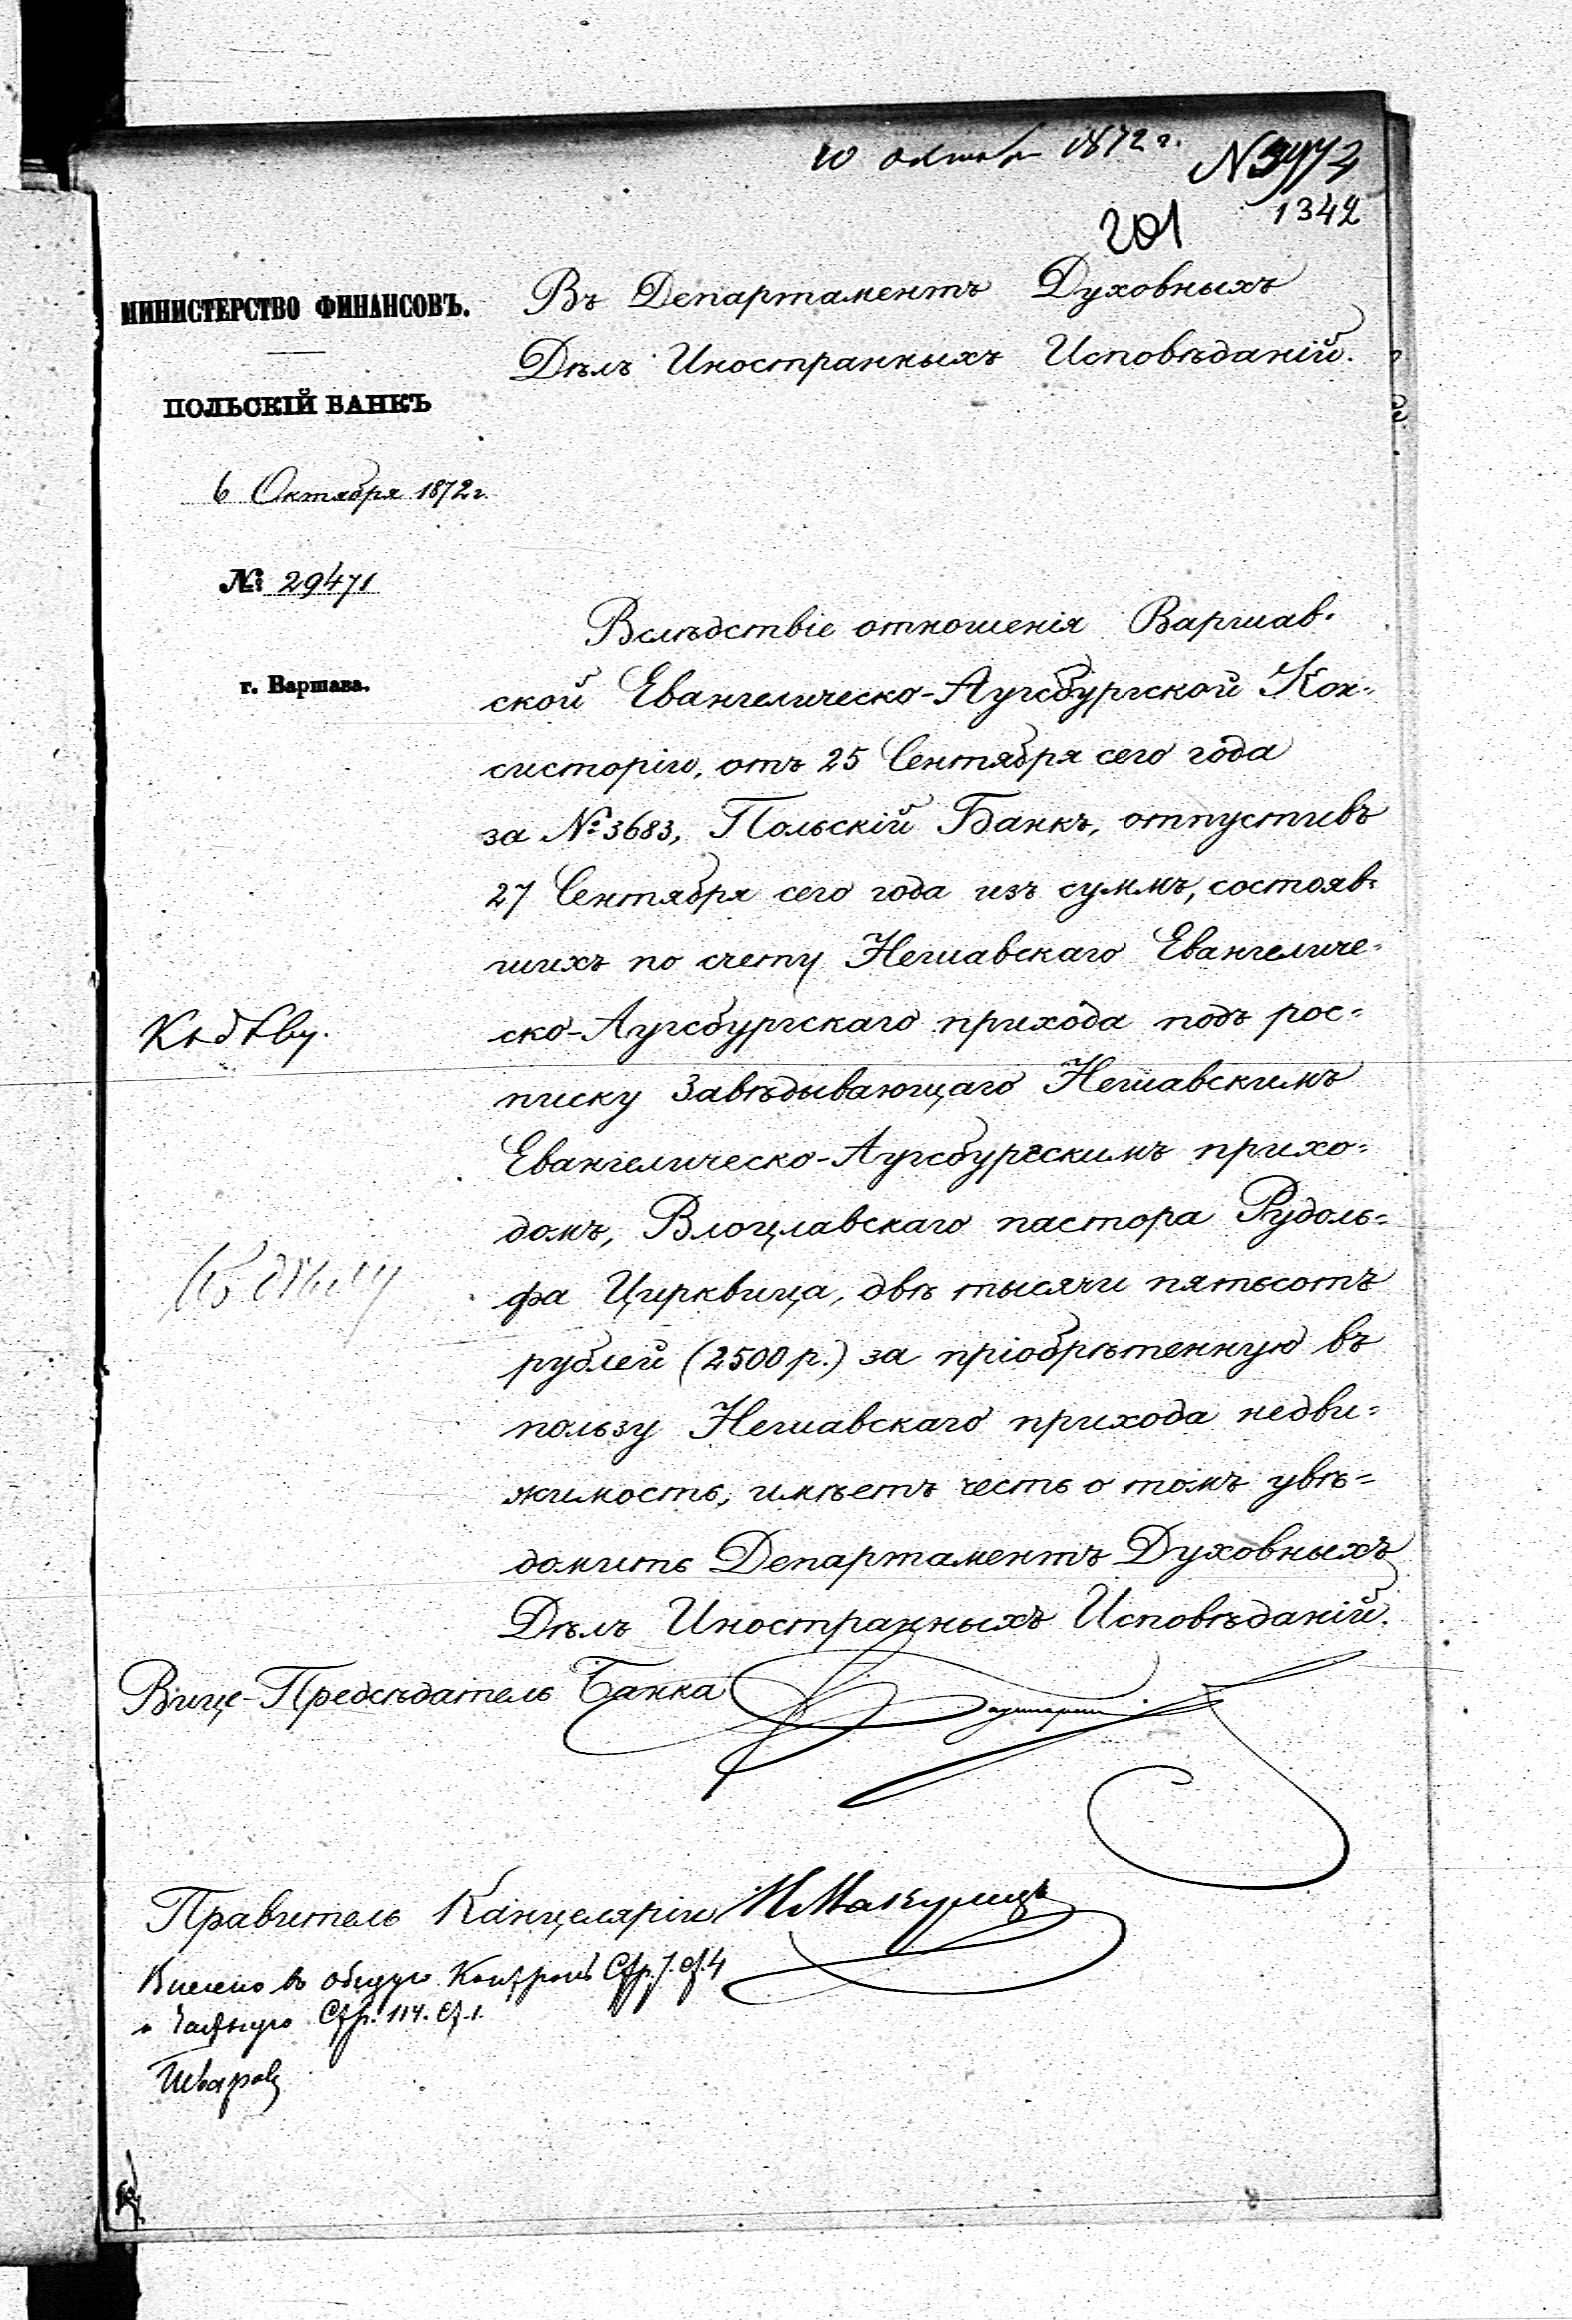 10 октября 1872 г.
1342
201
МИНИСТЕРСТВО ФИНАНСОВЪ.
ПОЛЬСКІЙ БАНКЪ
6 Октября 1872 г.
№ 29471
г. Варшава.
Въ Департаментъ Духовныхъ
Дѣлъ Иностранныхъ Исповѣданій.
Вслѣдствіе отношенія Варшав-
ской Евангелическо-Аугсбургской Кон-
систоріи, отъ 25 Сентября сего года
за № 3683, Польскій Банкъ, отпустивъ
27 Сентября сего года изъ суммъ, состояв-
шихъ по счету Нешавскаго Евангеличе-
ско-Аугсбургскаго прихода подъ рос-
писку Завѣдывающаго Нешавскимъ
Евангелическо-Аугсбургскимъ прихо-
домъ, Влоцлавскаго пастора Рудоль-
фа Цирквица, двѣ тысячи пятьсотъ
рублей (2500 р.) за пріобрѣтенную въ
пользу Нешавскаго прихода недви-
жимость, имѣетъ честь о томъ увѣ-
домить Департаментъ Духовныхъ
Дѣлъ Иностранныхъ Исповѣданій.
Къ дѣлу.
Къ дѣлу
Вице-Предсѣдатель Банка
Правитель Канцеляріи
Внесено въ общую Контроль Стр. 7. ст. 4
Частную Стр. 114. ст. 1.